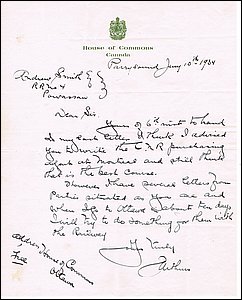 House of Commons
Canada
Parry Sound Jany 10th 1924
Andrew Smith Esq
RR No 4
Powassan
Dear Sir.
Yours of 6th inst to hand
In my last letter I think I advised
you to write the C.N.R purchasing
agent at Montreal and still think
that is the best course.
However I have several letters from
parties situated as you are and
when I go to Ottawa in about ten days
I will try to do something for them with
the Railway
Yr truly
Address House of Commons
Ottawa